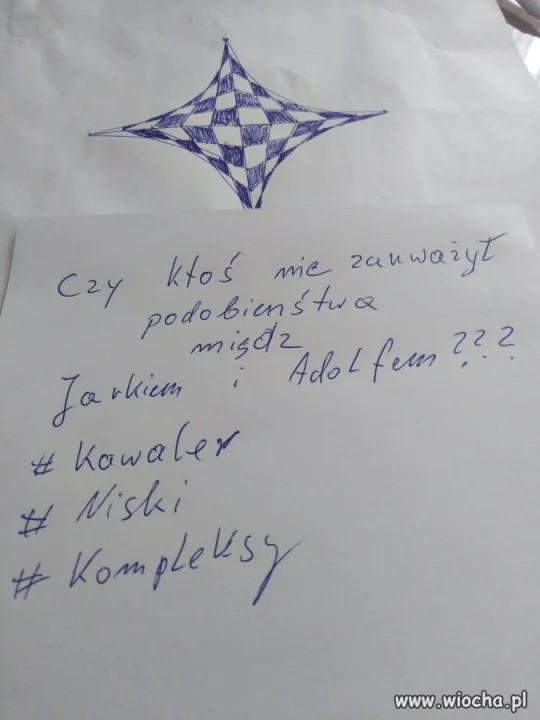 Czy ktoś nie zauważył
podobieństwa
międz
Jarkiem i Adolfem???
# Kawaler
# Niski
# Kompleksy
www.wiocha.pl